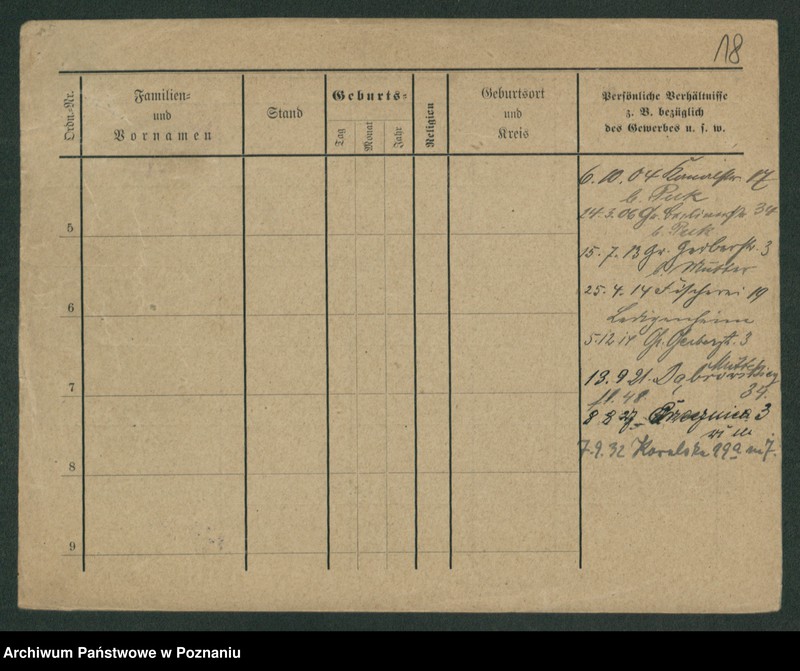 18
Ordn.-Nr.
Familien-
und
Vornamen
Stand
Geburts-
Tag
Monat
Jahr
Religion
Geburtsort
und
Kreis
Persönliche Verhältnisse
z. B. bezüglich
des Gewerbes u. s. w.
6. 10. 04 Kanalstr. 17
b. Puk
5
24. 3. 06 Gr. Berlinerstr 34
b. Puk
15. 7. 13 Gr. Gerberstr. 3
b. Mutter
6
25. 4. 14 Fischerei 19
Ledigenheim
5.12.14 Gr. Gerberst. 3
Mutter
7
13. 9 21. Dąbrowskieg
34.
8 8 27 3
7. 9. 32 29a m 7.
8
9
Archiwum Państwowe w Poznaniu